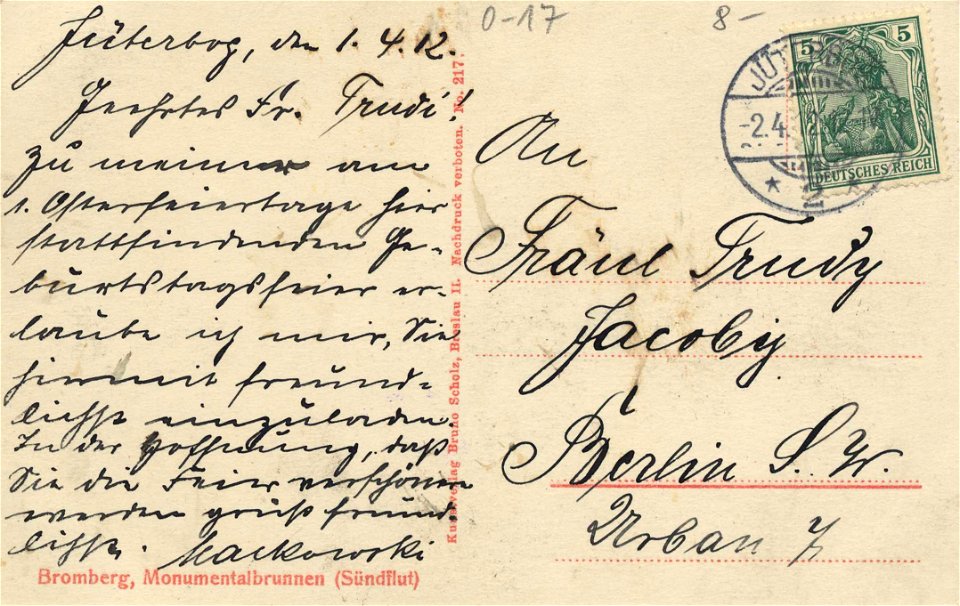 0-17
8-
Jüterbog, den 1.4.12.
Geehrtes Fr. Trudi!
Zu meiner am
1. Osterfeiertage hier
stattfindenden Ge-
burtstagsfeier er-
laube ich mir, Sie
hiermit freund-
lichst einzuladen.
In der Hoffnung, daß
Sie die Feier verschönern
werden grüßt freund-
lichst. Mackowski
Bromberg, Monumentalbrunnen (Sündflut)
Kunstverlag Bruno Scholz, Breslau II. Nachdruck verboten. No. 217.
5 5
DEUTSCHES REICH
-2.4
An
Fräul Trudy
Jacoby
Berlin S.W.
Urban 7